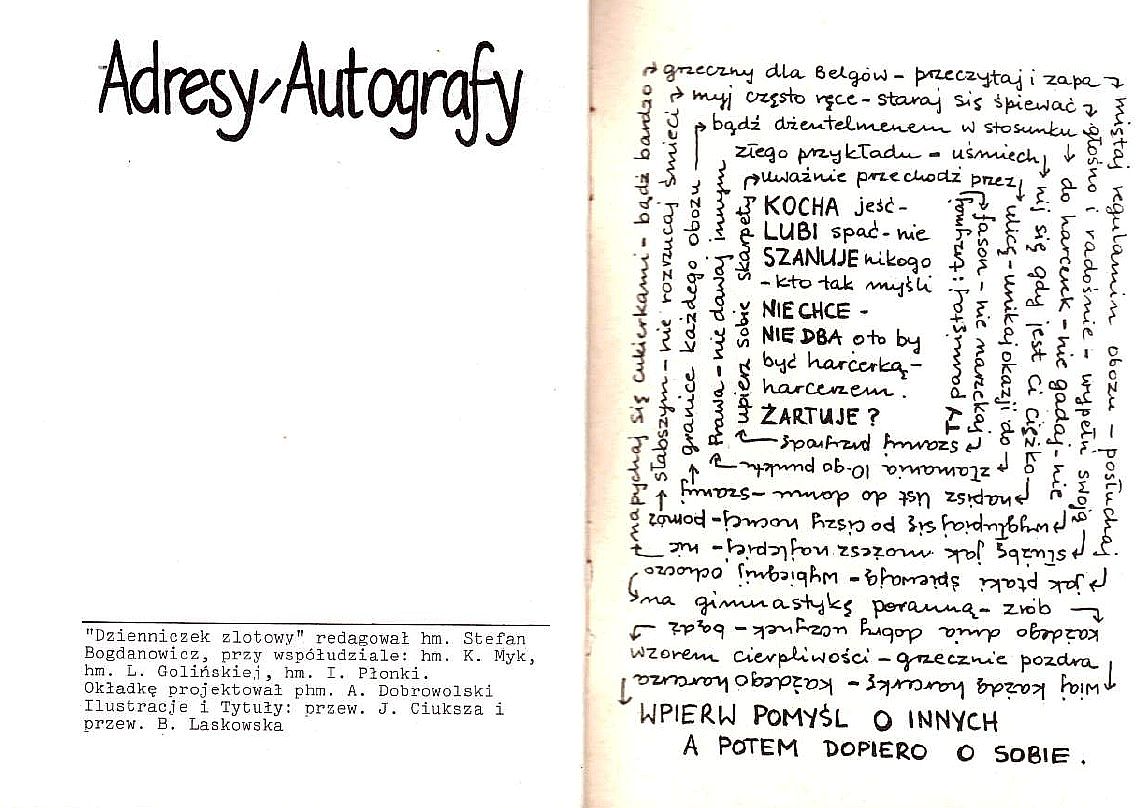 Adresy/Autografy
"Dzienniczek zlotowy" redagował hm. Stefan
Bogdanowicz, przy współudziale: hm. K. Myk,
hm. L. Golińskiej, hm. I. Płonki.
Okładkę projektował phm. A. Dobrowolski
Ilustracje i Tytuły: przew. J. Ciuksza i
przew. B. Laskowska
KOCHA jeść-
LUBI spać-nie
SZANUJE nikogo
-kto tak myśli
NIE CHCE -
NIE DBA oto by
być harcerką-
harcerzem.
ŻARTUJE?
TY pamiętaj: trzymaj
fason - nie narzekaj
szanuj przyrodę
upierz sobie skarpety
uważnie przechodź przez
ulicę - unikaj okazji do
złamania 10-go punktu
Prawa - nie dawaj innym
złego przykładu - uśmiech
nij się gdy jest Ci ciężko
napisz list do domu - szanuj
granice każdego obozu
bądź dżentelmenem w stosunku
do harcerek - nie gadaj - nie
wygłupiaj się po ciszy nocnej - pomóż
słabszym - nie rozrzucaj śmieci
myj często ręce - staraj się śpiewać
głośno i radośnie - wypełń swoją
służbę jak możesz najlepiej - nie
napychaj się cukierkami - bądź bardzo
grzeczny dla Belgów - przeczytaj i zapa
miętaj regulamin obozu - posłuchaj
jak ptaki śpiewają - wybiegnij ochoczo
na gimnastykę poranną - zrób
każdego dnia dobry uczynek - bądź
wzorem cierpliwości - grzecznie pozdra
wiaj każdą harcerkę - każdego harcerza
WPIERW POMYŚL O INNYCH
A POTEM DOPIERO O SOBIE.